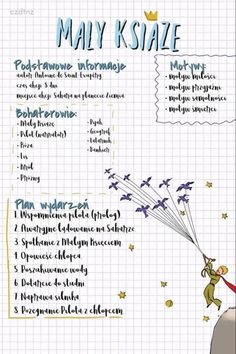 czdtnz
MAŁY KSIĄŻE
Podstawowe informacje
autor: Antoine de Saint Exupéry
czas akcji: 8 dni
miejsce akcji: Sahara na planecie Ziemia
Motywy:
- motyw miłości
- motyw przyjaźni
- motyw samotności
- motyw śmierci
Bohaterowie:
- Mały Książę
- Pilot (narrator)
- Róża
- Lis
- Król
- Próżny
- Pijak
- Geograf
- Latarnik
- Bankier
Plan wydarzeń
1. Wspomnienia pilota (prolog)
2. Awaryjne lądowanie na Saharze
3. Spotkanie z Małym Księciem
4. Opowieść chłopca
5. Poszukiwanie wody
6. Dotarcie do studni
7. Naprawa silnika
8. Pożegnanie Pilota z chłopcem